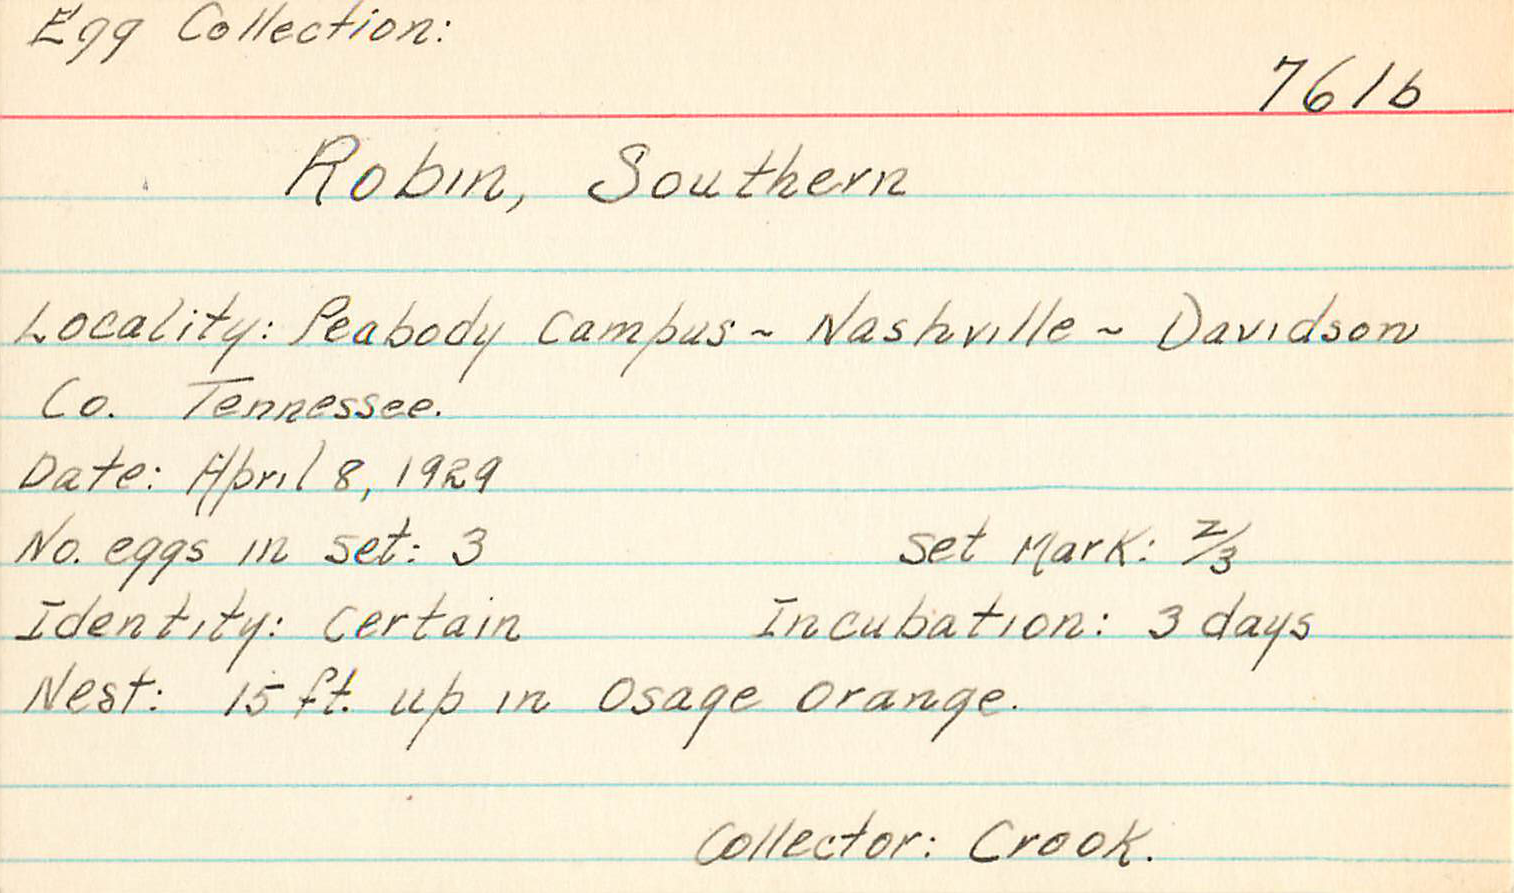 Egg Collection:
761b
Robin, Southern
Locality: Peabody Campus ~ Nashville ~ Davidson
Co. Tennessee.
Date: April 8, 1929
No. eggs in set: 3 Set Mark: 2/3
Identity: Certain Incubation: 3 days
Nest: 15 ft. up in Osage Orange.
Collector: Crook.